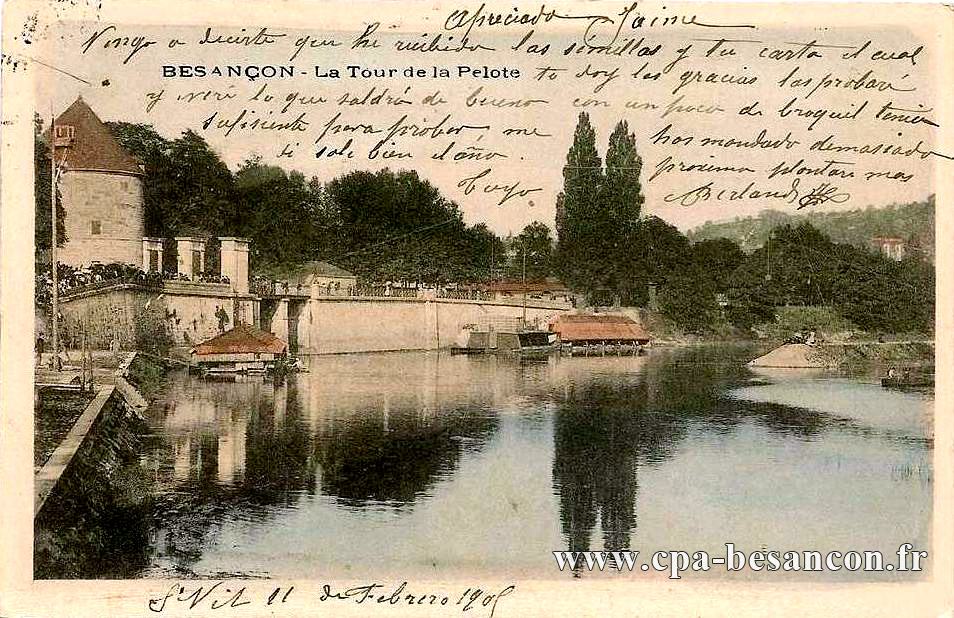 Apreciado Jaime
Vengo a decirte que he recibido las similles y tu carta el cual
BESANÇON - La Tour de la Pelote
te doy las gracias las probaré
y veré lo que saldrá de bueno con un poco de broquil tenia
sufisiente para probar, me has mandado demasiado
si sale bien el año proxima plantare mas
Tuyo
Berlandi
www.cpa-besancon.fr
St Vit 11 de Febrero 1905